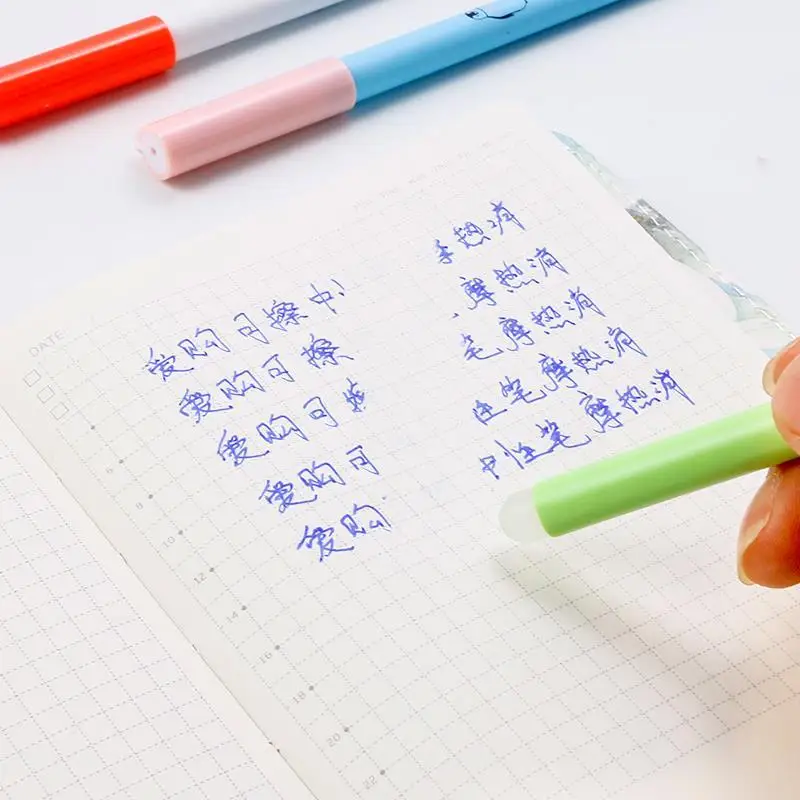 DATE
爱购可擦中 摩热消
爱购可擦 摩热消
爱购可 笔摩热消
爱购可 性笔摩热消
爱购 中性笔摩热消
6
8
10
12
14
16
18
20
22